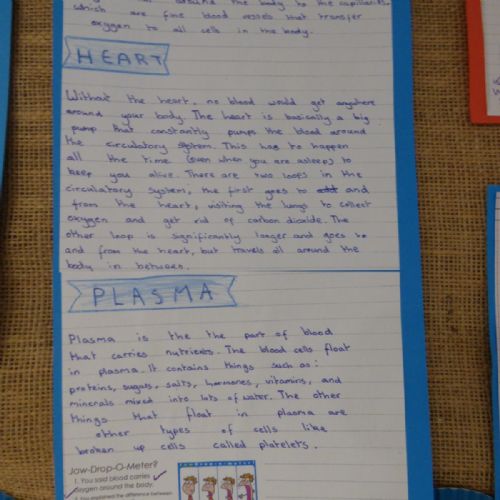 around the body to the capillaries,
which are fine blood vessels that transfer
oxygen to all cells in the body.
HEART
Without the heart, no blood would get anywhere
around your body. The heart is basically a big
pump that constantly pumps the blood around
the circulatory system. This has to happen
all the time (even when you are asleep) to
keep you alive. There are two loops in the
circulatory system, the first goes to and
from the heart, visiting the lungs to collect
oxygen and get rid of carbon dioxide. The
other loop is significantly longer and goes to
and from the heart, but travels all around the
body in between.
PLASMA
Plasma is the the part of blood
that carries nutrients. The blood cells float
in plasma. It contains things such as:
proteins, sugars, salts, hormones, vitamins, and
minerals mixed into lots of water. The other
things that float in plasma are
other types of cells like
broken up cells called platelets.
Jaw-Drop-O-Meter?
1. You said blood carries
oxygen around the body.
2. You explained the difference between